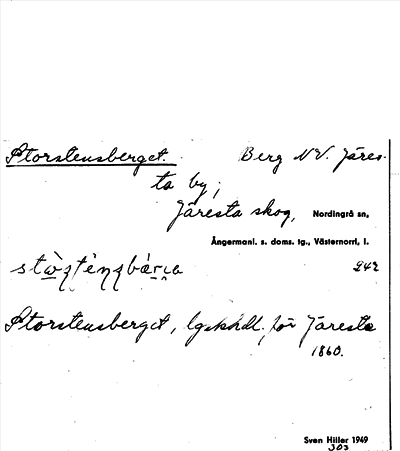 Storstensberget. Berg NV. Järes-
ta by,
Järesta skog, Nordingrå sn,
Ångermanl. s. doms. tg., Västernorrl. l.
242
Storstensberget, lgskhdl. för Järesta
1860.
Sven Hiller 1949
303